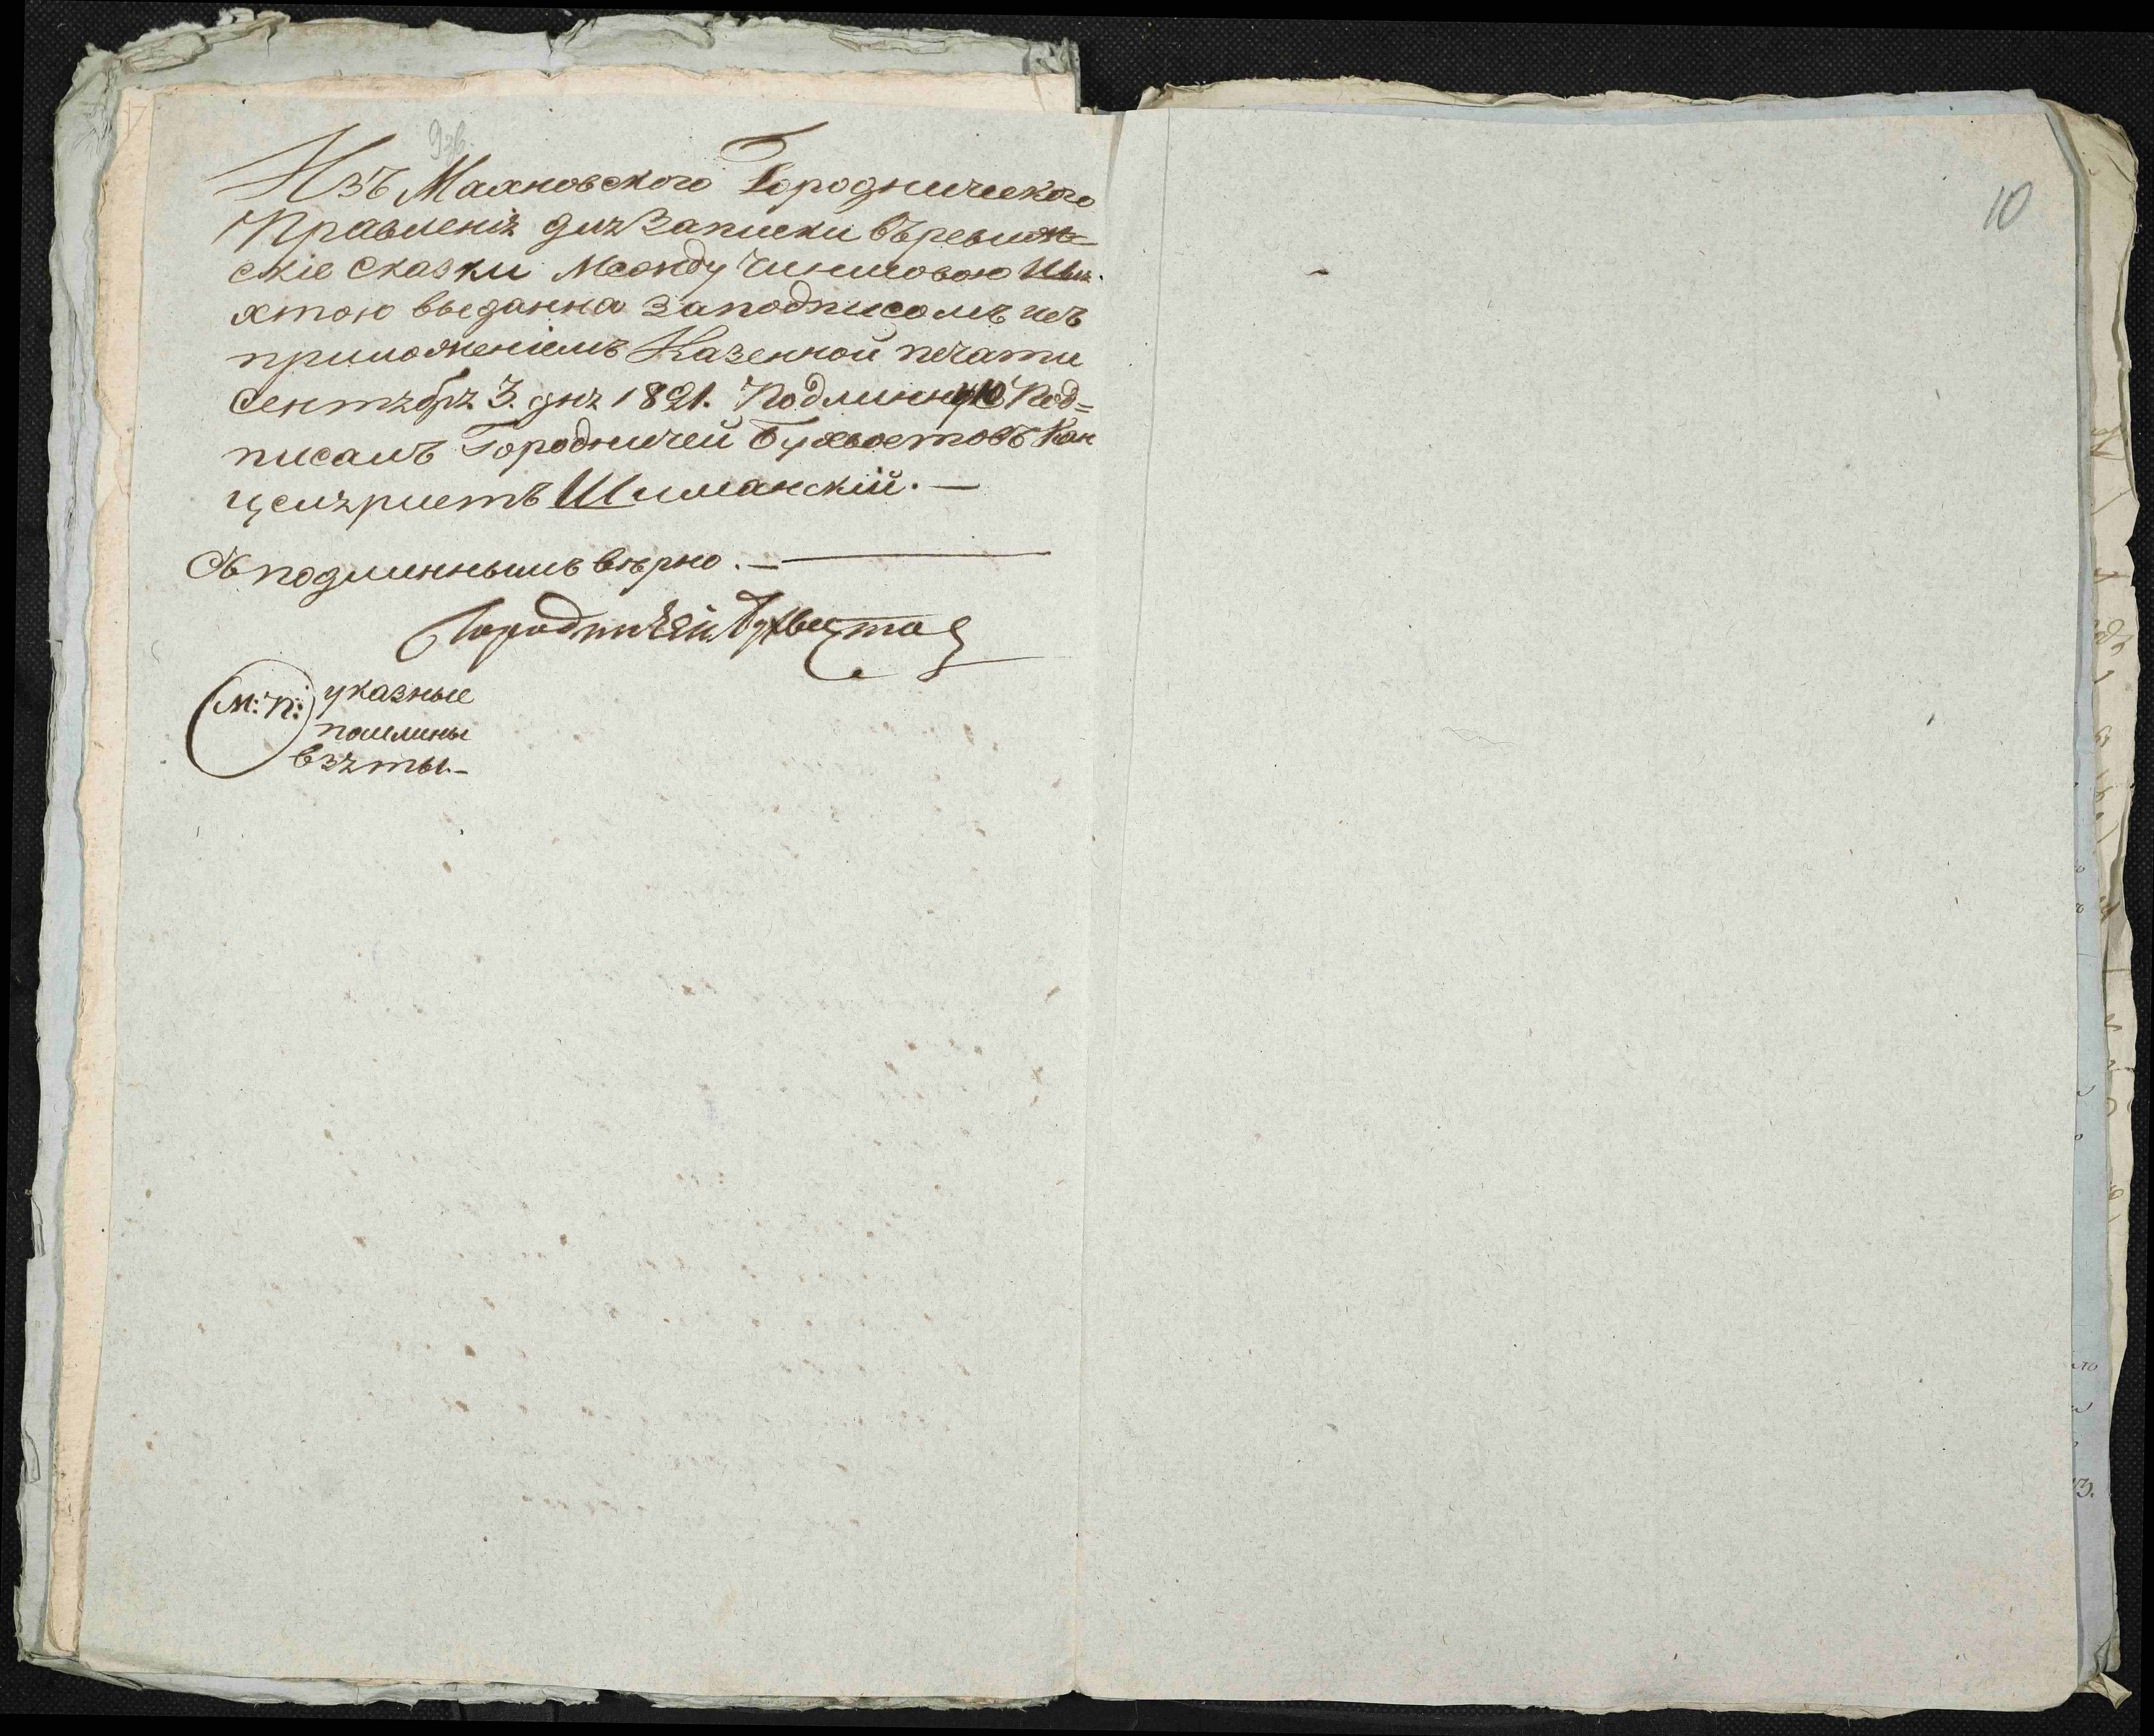 9зв.
Изъ Маяновского Городническаго
Правленія для Записки въревиж=
скіе Сказки Между Чиншовою Шля
хтою выданна заподписомъ исъ
приложеніемъ Казенной печати
Сентября 3. дня 1821. Подлинную Под=
писалъ Городничей Бухвостовъ Кан
целяристъ Шиманскій. —
Съ подлиннымъ вѣрно. —
Городничей Бухвостов
М: П: указные
пошлины
взяты. –
10